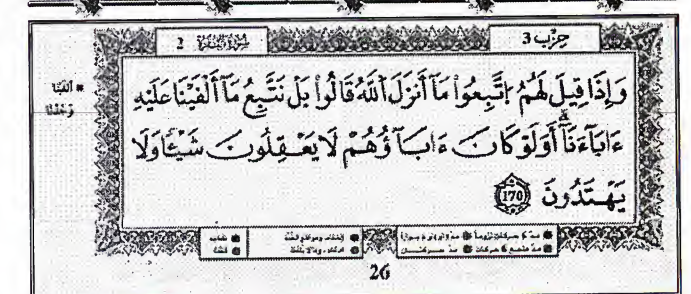 حِزْب 3
سُورَةُ الْبَقَرَةِ 2
وَإِذَا قِيلَ لَهُمُ اِتَّبِعُواْ مَآ أَنزَلَ اَللَّهُ قَالُواْ بَلْ نَتَّبِعُ مَآ أَلْفَيْنَا عَلَيْهِ
ءَابَآءَنَآ أَوَلَوْ كَانَ ءَابَآؤُهُمْ لَا يَعْقِلُونَ شَيْـًٔا وَلَا
يَهْتَدُونَ 170
أَلْفَيْنَا
وَجَدْنَا
26